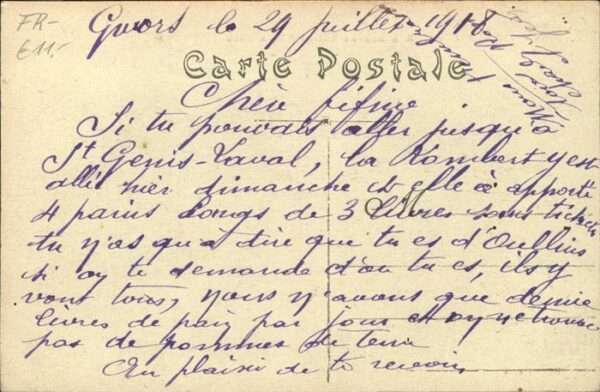 FR-
€11.-
Givors le 29 juillet 1918
Carte Postale
Chère Fifine
Si tu pouvais aller jusqu'à
St Genis-Laval, la Rambert y est
allé hier dimanche et elle à apporté
4 pains longs de 3 livres sans tickets
tu n'as qu'à dire que tu es d'Oullins
si on te demande d'ou tu es, ils y
vont tous, nous n'avons que demie
livres de pain par jour et on ne trouve
pas de pommes de terre
Au plaisir de te revoir